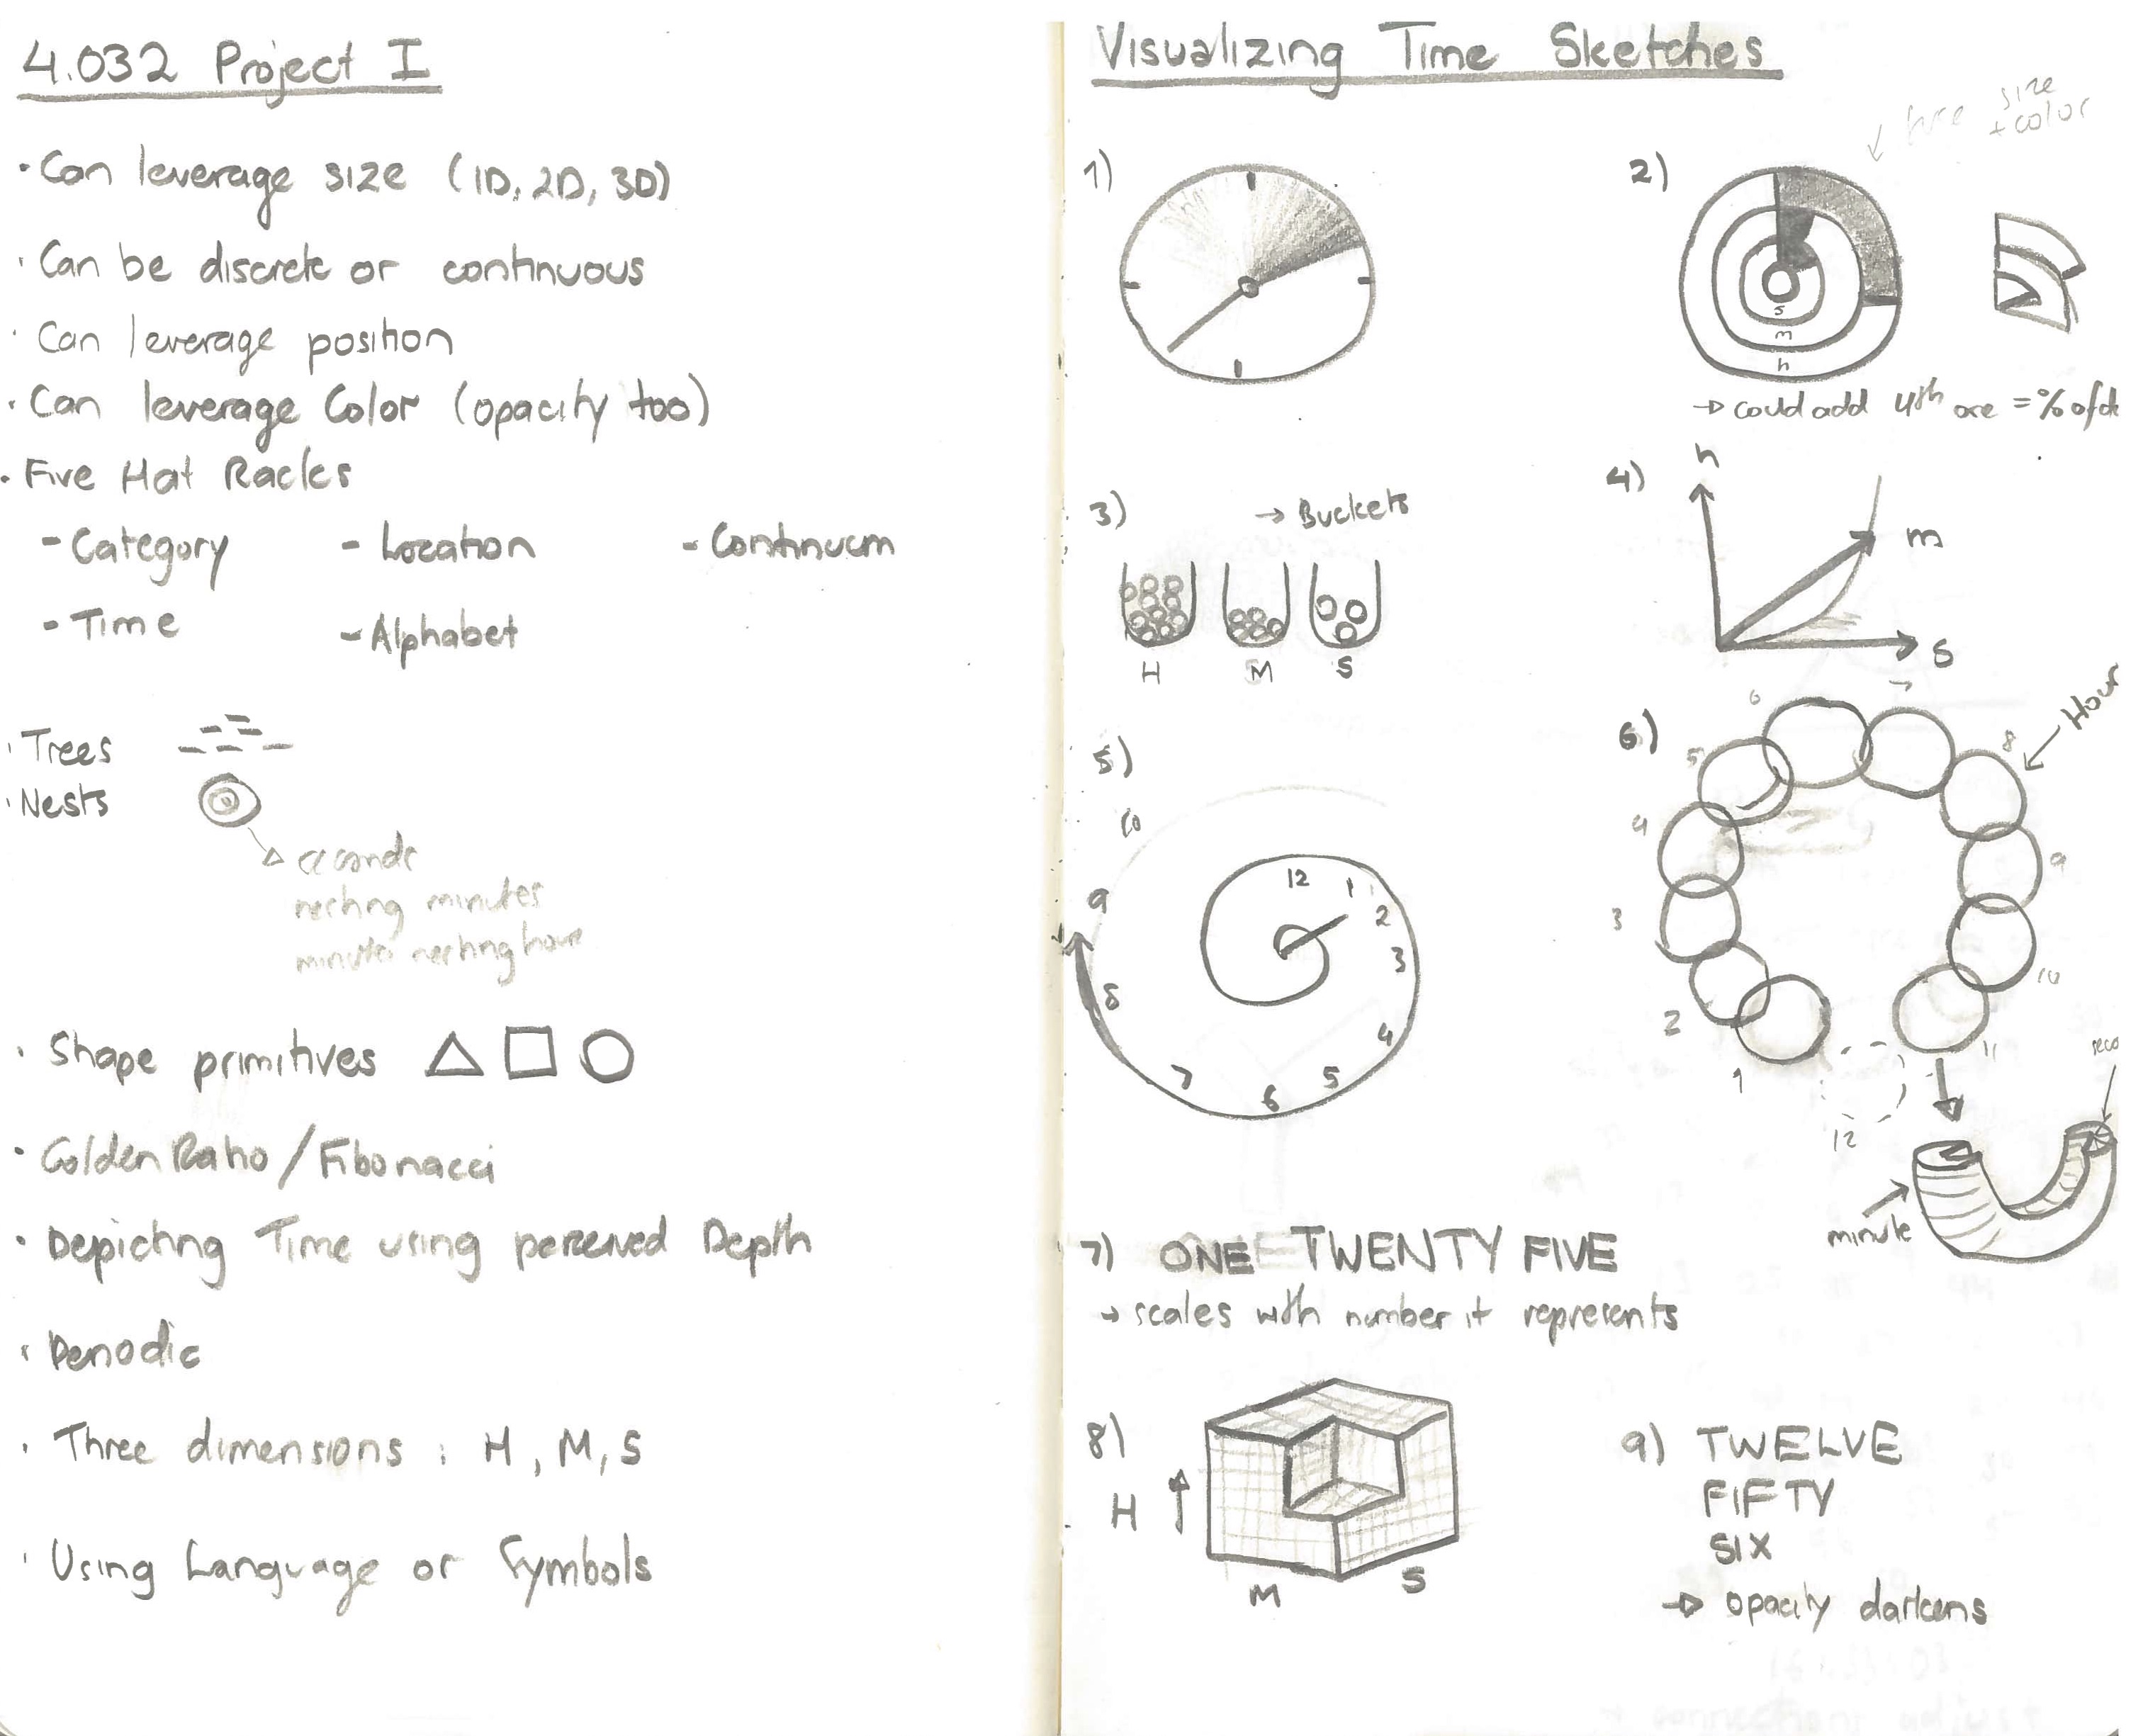 4.032 Project I
• Can leverage size (1D, 2D, 3D)
• Can be discrete or continuous
• Can leverage position
• Can leverage Color (opacity too)
• Five Hat Racks
- Category - Location - Continuum
- Time - Alphabet
• Trees
• Nests
seconds
nesting minutes
minutes nesting hour
• Shape primitives
• Golden Ratio / Fibonacci
• Depicting Time using perceived Depth
• Periodic
• Three dimensions : H, M, S
• Using Language or Symbols
Visualizing Time Sketches
size
+ color
1)
2)
s
m
h
→ could add 4th one = % of d
3) → Buckets
H M S
4)
h
m
s
5)
12
1
2
3
4
5
6
7
8
9
10
6)
Hour
1
2
3
4
5
6
7
8
9
10
11
12
seco
minute
7) ONE TWENTY FIVE
→ scales with number it represents
8)
H
M
S
9) TWELVE
FIFTY
SIX
→ opacity darkens